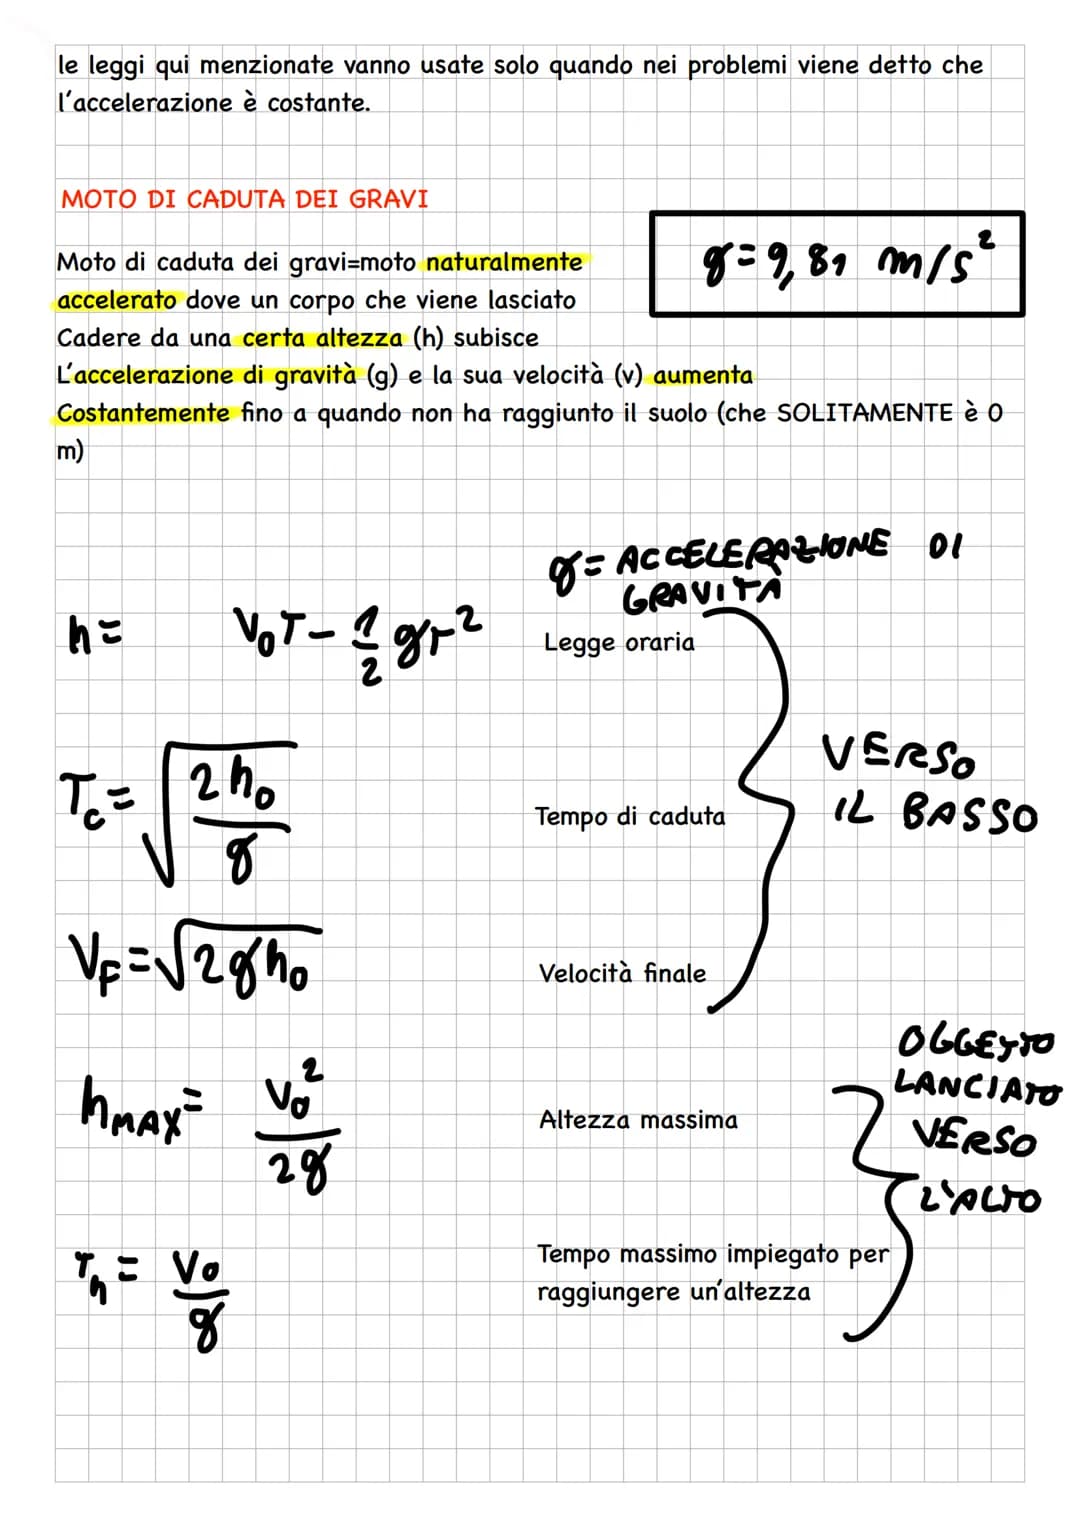 le leggi qui menzionate vanno usate solo quando nei problemi viene detto che
l'accelerazione è costante.
MOTO DI CADUTA DEI GRAVI
g=9,81 m/s²
Moto di caduta dei gravi=moto naturalmente
accelerato dove un corpo che viene lasciato
Cadere da una certa altezza (h) subisce
L'accelerazione di gravità (g) e la sua velocità (v) aumenta
Costantemente fino a quando non ha raggiunto il suolo (che SOLITAMENTE è 0
m)
g= ACCELERAZIONE DI
GRAVITÀ
h= V₀T - 1/2 gT² Legge oraria
VERSO
IL BASSO
T_c = √(2h₀/g) Tempo di caduta
V_F = √2gh₀ Velocità finale
OGGETTO
LANCIATO
VERSO
L'ALTO
h_MAX = V₀²/2g Altezza massima
T_h = V₀/g Tempo massimo impiegato per
raggiungere un'altezza